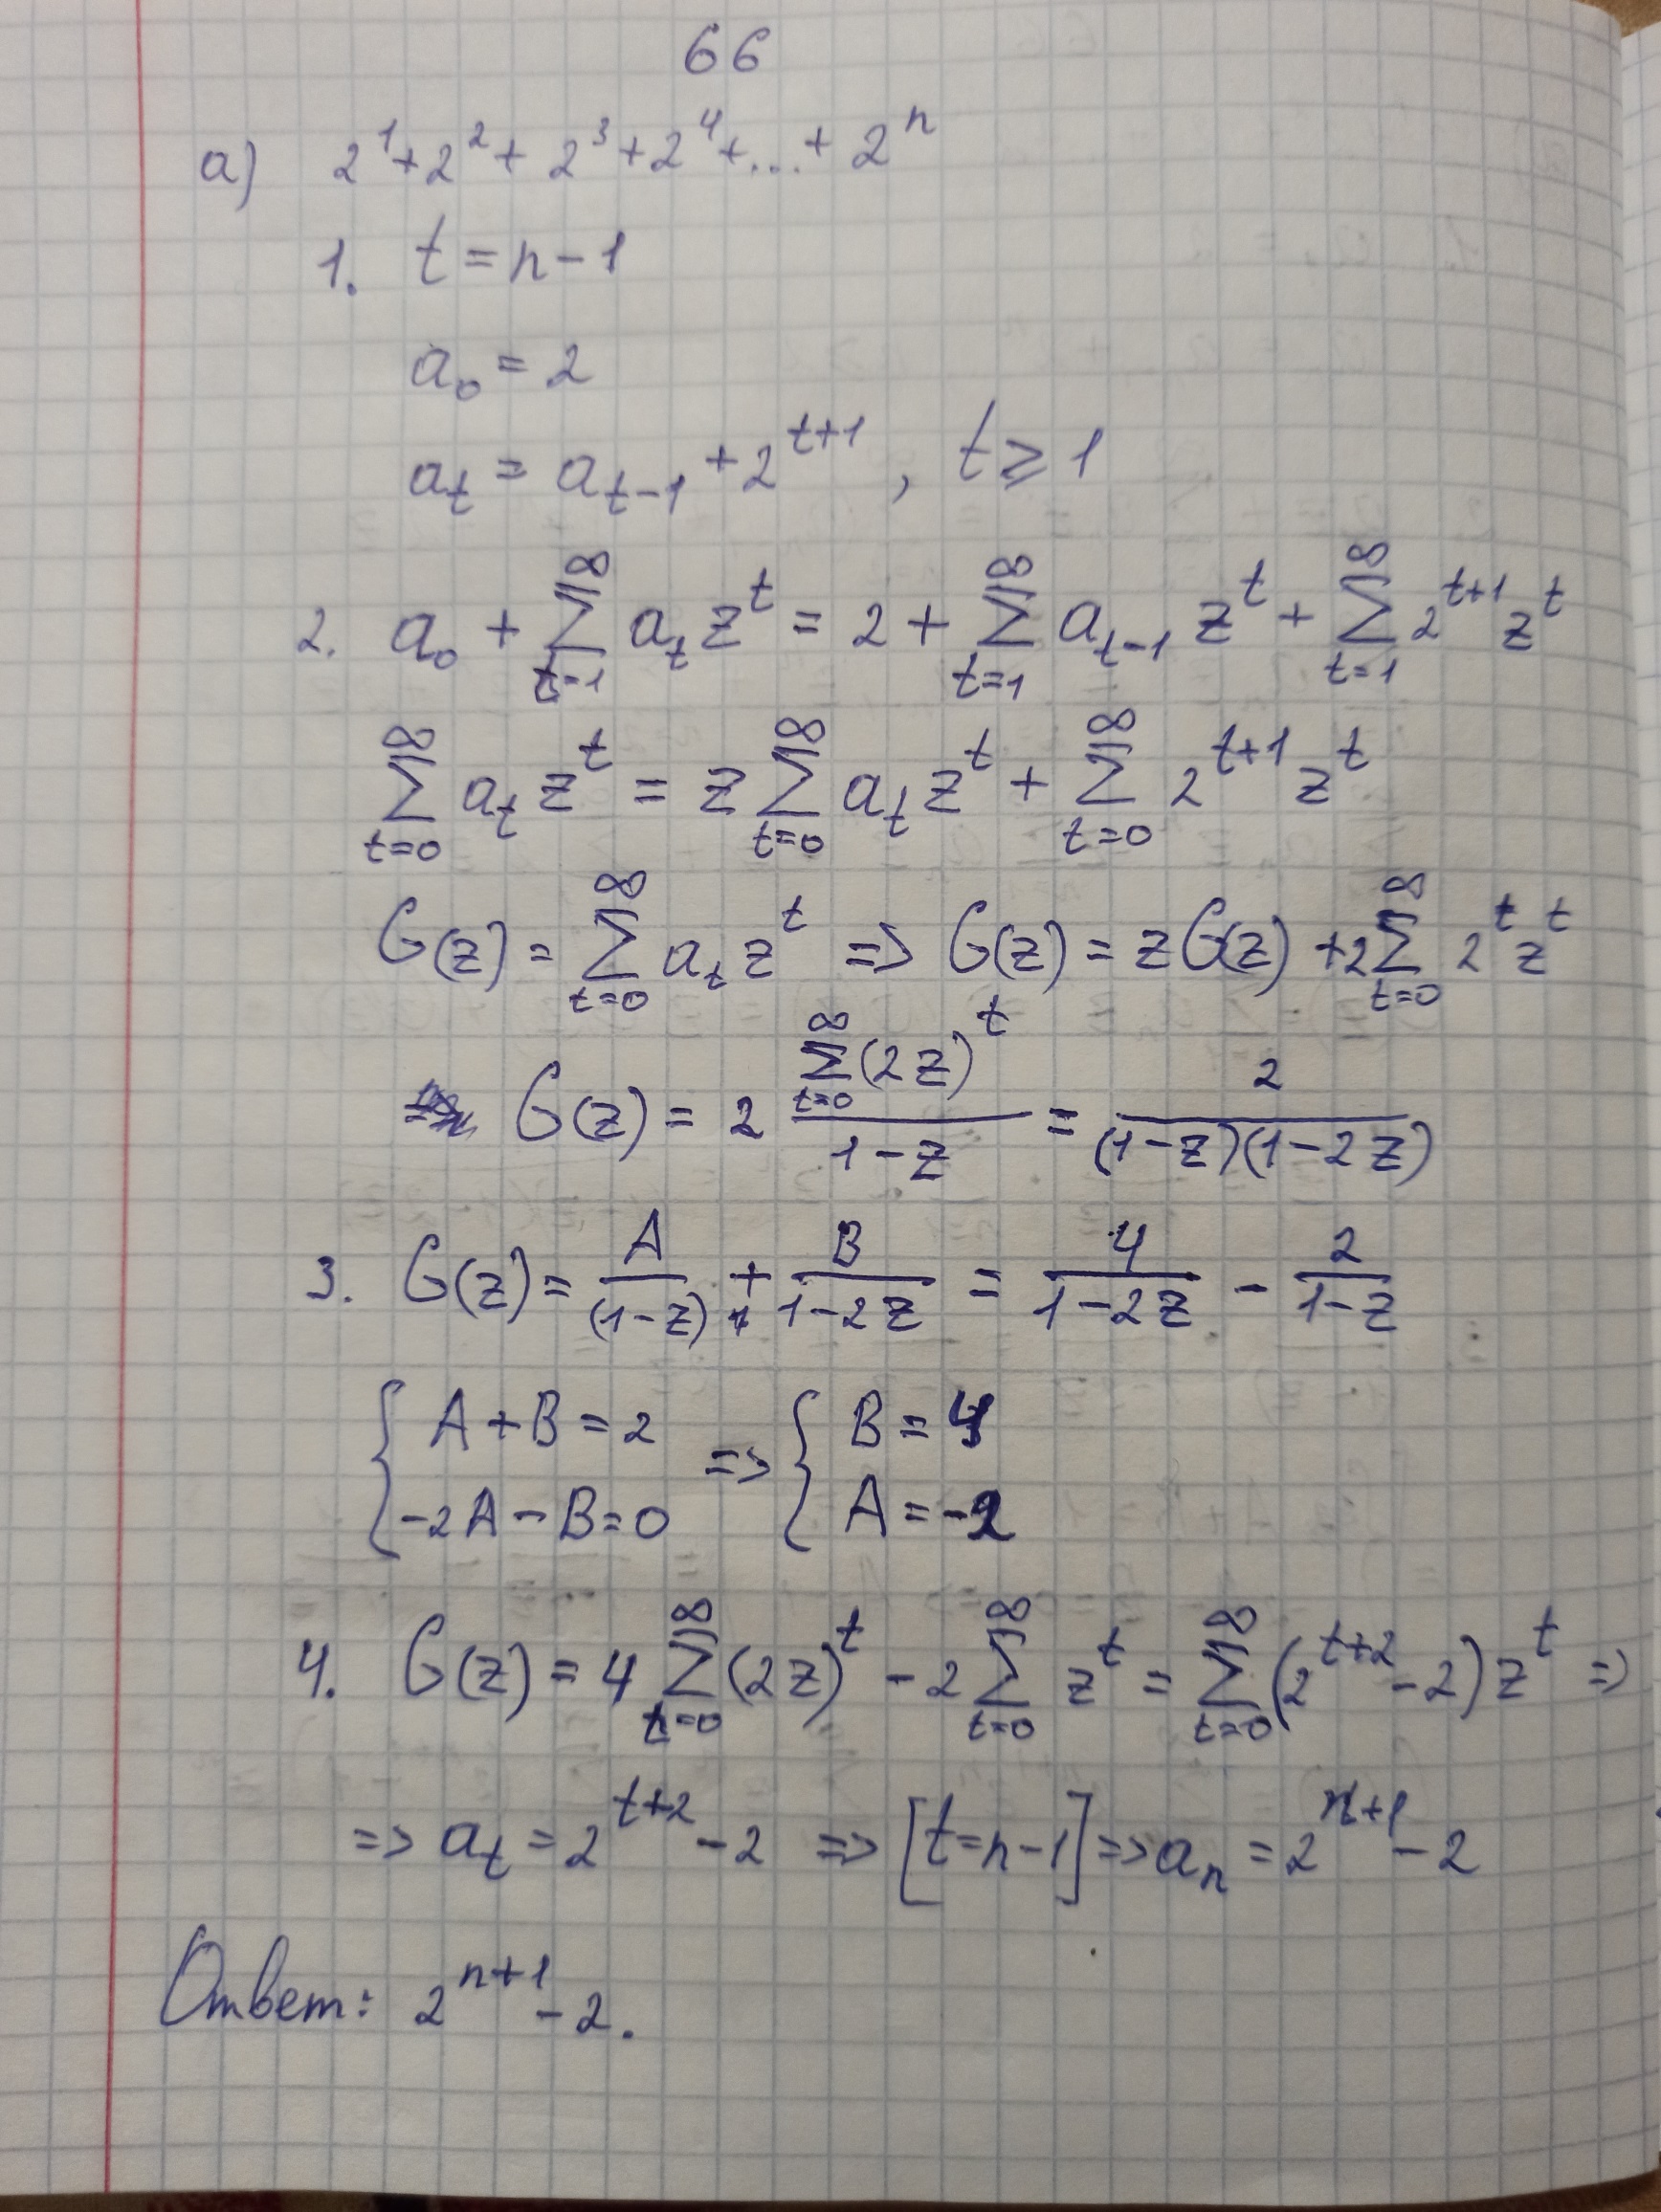 66
а) 2^1 + 2^2 + 2^3 + 2^4 + ... + 2^n
1. t = n - 1
a_0 = 2
a_t = a_{t-1} + 2^{t+1}, t ⩾ 1
2. a_0 + ∑_{t=1}^{∞} a_t z^t = 2 + ∑_{t=1}^{∞} a_{t-1} z^t + ∑_{t=1}^{∞} 2^{t+1} z^t
∑_{t=0}^{∞} a_t z^t = z ∑_{t=0}^{∞} a_t z^t + ∑_{t=0}^{∞} 2^{t+1} z^t
G(z) = ∑_{t=0}^{∞} a_t z^t => G(z) = z G(z) + 2 ∑_{t=0}^{∞} 2^t z^t
G(z) = 2 \frac{∑_{t=0}^{∞} (2z)^t}{1-z} = \frac{2}{(1-z)(1-2z)}
3. G(z) = \frac{A}{(1-z)} + \frac{B}{1-2z} = \frac{4}{1-2z} - \frac{2}{1-z}
{ A + B = 2 => { B = 4
-2A - B = 0 A = -2
4. G(z) = 4 ∑_{t=0}^{∞} (2z)^t - 2 ∑_{t=0}^{∞} z^t = ∑_{t=0}^{∞} (2^{t+2} - 2) z^t =>
=> a_t = 2^{t+2} - 2 => [t = n-1] => a_n = 2^{n+1} - 2
Ответ: 2^{n+1} - 2.